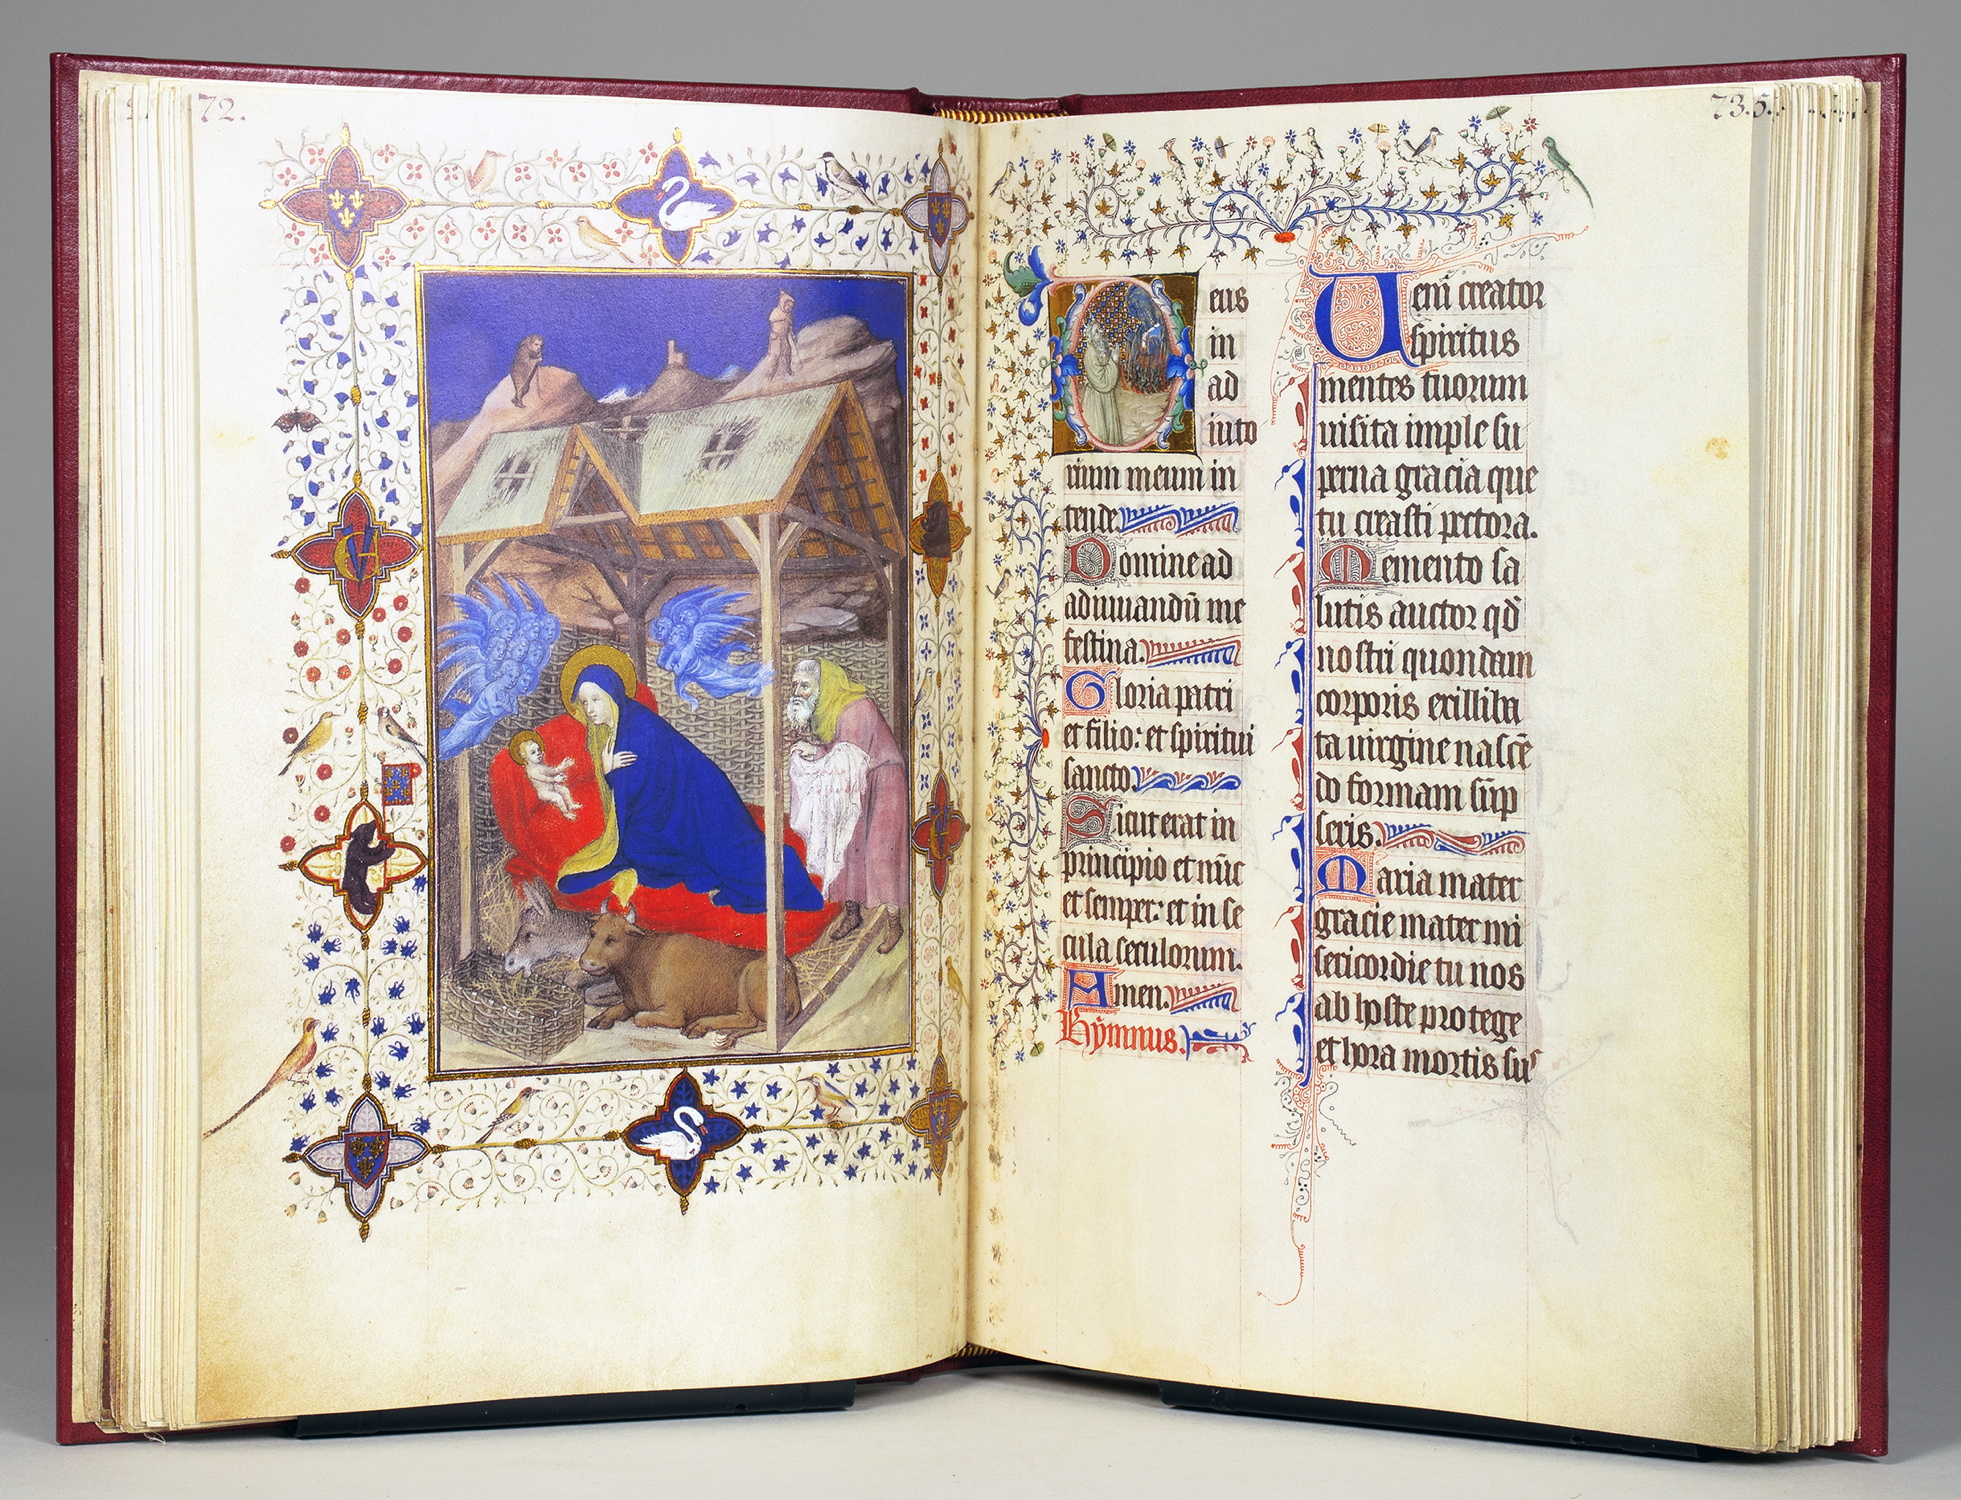 72.
73.
Deus
in
ad
iuto
rium meum in
tende.
Domine ad
adiuuandū me
festina.
Gloria patri
et filio: et spiritui
sancto.
Sicut erat in
principio et nūc
et semper: et in se
cula seculorum.
Amen.
Hymnus.
Uenī creator
spiritus
mentes tuorum
uisita imple su
perna gracia que
tu creasti pectora.
Memento sa
lutis auctor qd̄
nostri quondam
corporis exilliba
ta uirgine nascē
do formam sūp
seris.
Maria mater
gracie mater mi
sericordie tu nos
ab hoste protege
et hora mortis sus